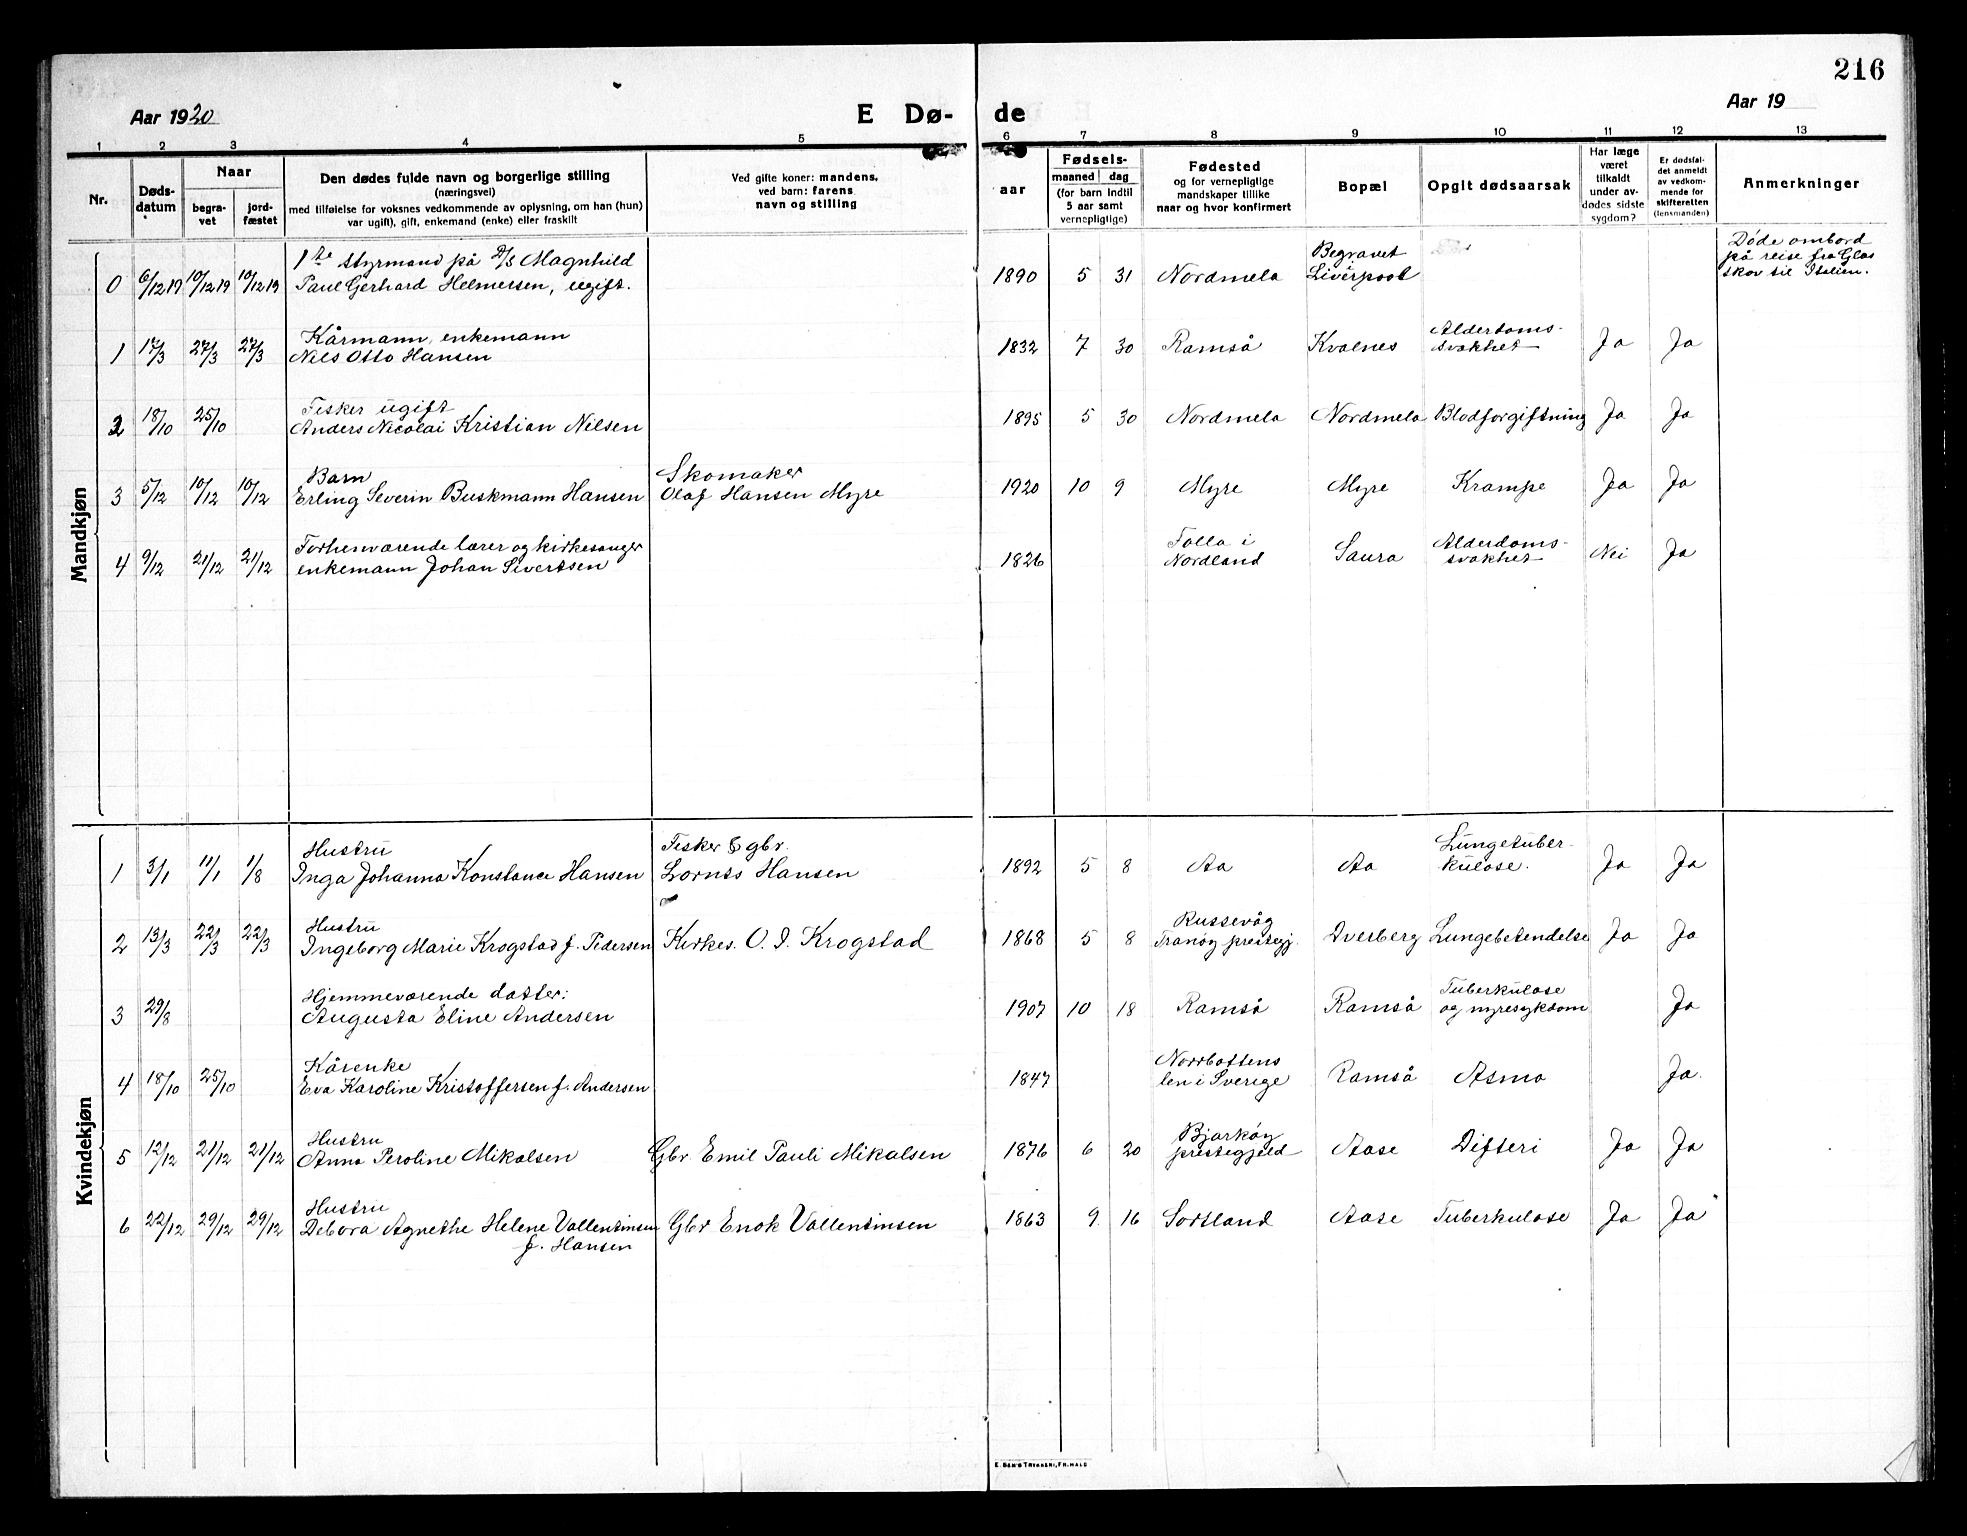 216
Aar 1920
E Dø-
de
Aar 19
1 2 3 4 5 6 7 8 9 10 11 12 13
Nr.
Døds-
datum
Naar
begra-
vet
jord-
fæstet
Den dødes fulde navn og borgerlige stilling
(næringsvei)
med tilføielse for voksnes vedkommende av oplysning, om han (hun)
var ugift), gift, enkemand (enke) eller fraskilt
Ved gifte koner: mandens,
ved barn: farens
navn og stilling
aar
Fødsels-
maaned dag
(for barn indtil
5 aar samt
vernepligtige)
Fødested
og for vernepligtige
mandskaper tillike
naar og hvor konfirmert
Bopæl
Opgit dødsaarsak
Har læge
været
tilkaldt
under av-
dødes sidste
sygdom?
Er dødsfal-
det anmeldt
av vedkom-
mende for
skifteretten
(lensmanden)
Anmerkninger
Mandkjøn
1ste styrmand på D/S Magnhild Begravet Døde ombord
0 6/12 19 10/12 19 10/12 19 Paul Gerhard Helmersen, ugift. 1890 5 31 Nordmela Liverpool på reise fra Glas
skov til Italien.
Kårmann, enkemann Alderdoms-
1 17/3 27/3 27/3 Nils Otto Hansen 1832 7 30 Ramså Kvalnes svakhet Ja Ja
Fisker ugift
2 18/10 25/10 Anders Nicolai Kristian Nilsen 1895 5 30 Nordmela Nordmela Blodforgiftning Ja Ja
Barn Skomaker
3 5/12 10/12 10/12 Erling Severin Buskmann Hansen Olaf Hansen Myre 1920 10 9 Myre Myre Krampe Ja Ja
Forhenværende lærer og kirkesanger Folla i Alderdoms-
4 9/12 21/12 21/12 enkemann Johan Sivertsen 1826 Nordland Saura svakhet Nei Ja
Kvindekjøn
Hustru Fisker & gbr. Lungetuber-
1 3/1 11/1 1/8 Inga Johanna Konstance Hansen Hansen 1892 5 8 Aa Aa kulose. Ja Ja
Hustru Russevåg
2 13/3 22/3 22/3 Ingeborg Marie Krogstad f. Pedersen Kirkes. O. J. Krogstad 1868 5 8 Tranøy prestegj. Dverberg Lungebetendelse Ja Ja
Hjemmeværende datter: Tuberkulose
3 29/8 Augusta Eline Andersen 1907 10 18 Ramså Ramså og nyresykdom Ja
Kårenke Norrbottens
4 18/10 25/10 Eva Karoline Kristoffersen f. Andersen 1847 len i Sverige Ramså Asma Ja.
Hustru Bjarkøy
5 12/12 21/12 21/12 Anna Peroline Mikalsen Gbr Emil Pauli Mikalsen 1876 6 20 prestegjeld Aase Difteri Ja Ja
Hustru
6 22/12 29/12 29/12 Debora Agnethe Helene Vallentinsen Gbr Enok Vallentinsen 1863 9. 16 Sortland Aase Tuberkulose Ja Ja
f. Hansen